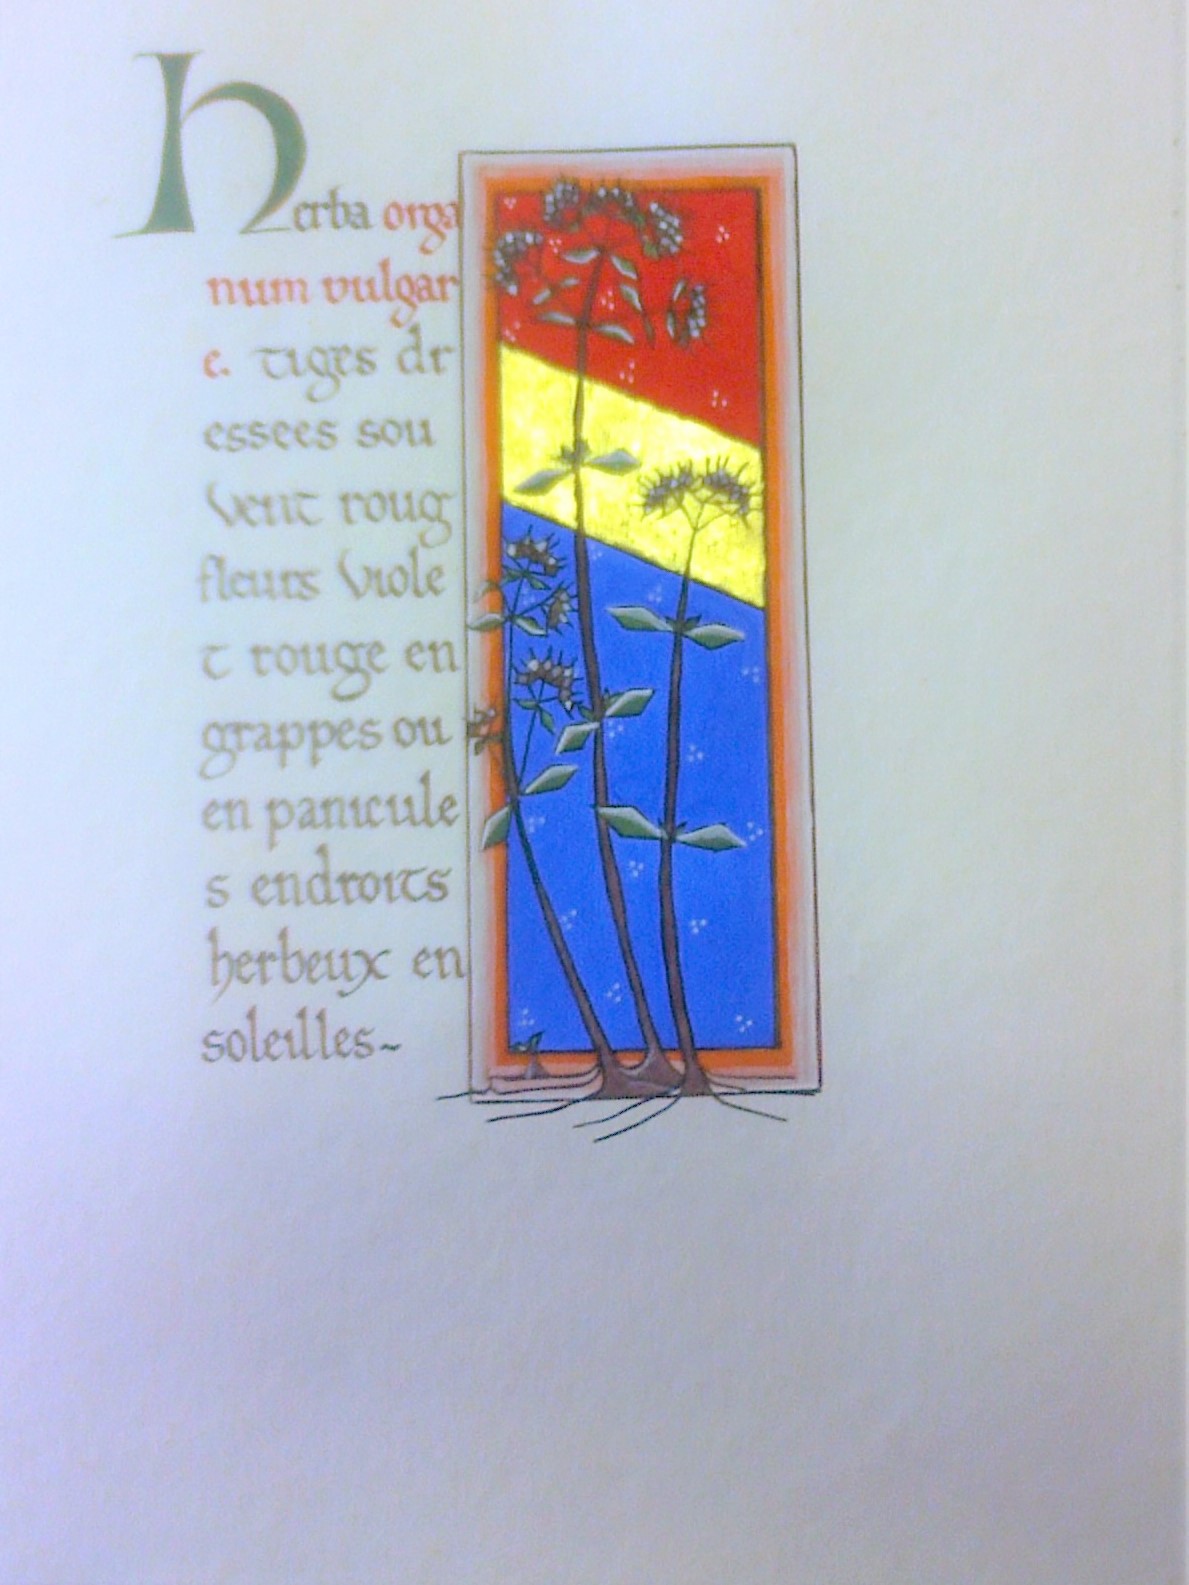 herba orga
num vulgar
e. tiges dr
essees sou
vent roug
fleurs viole
t rouge en
grappes ou
en panicule
s endroits
herbeux en
soleilles~